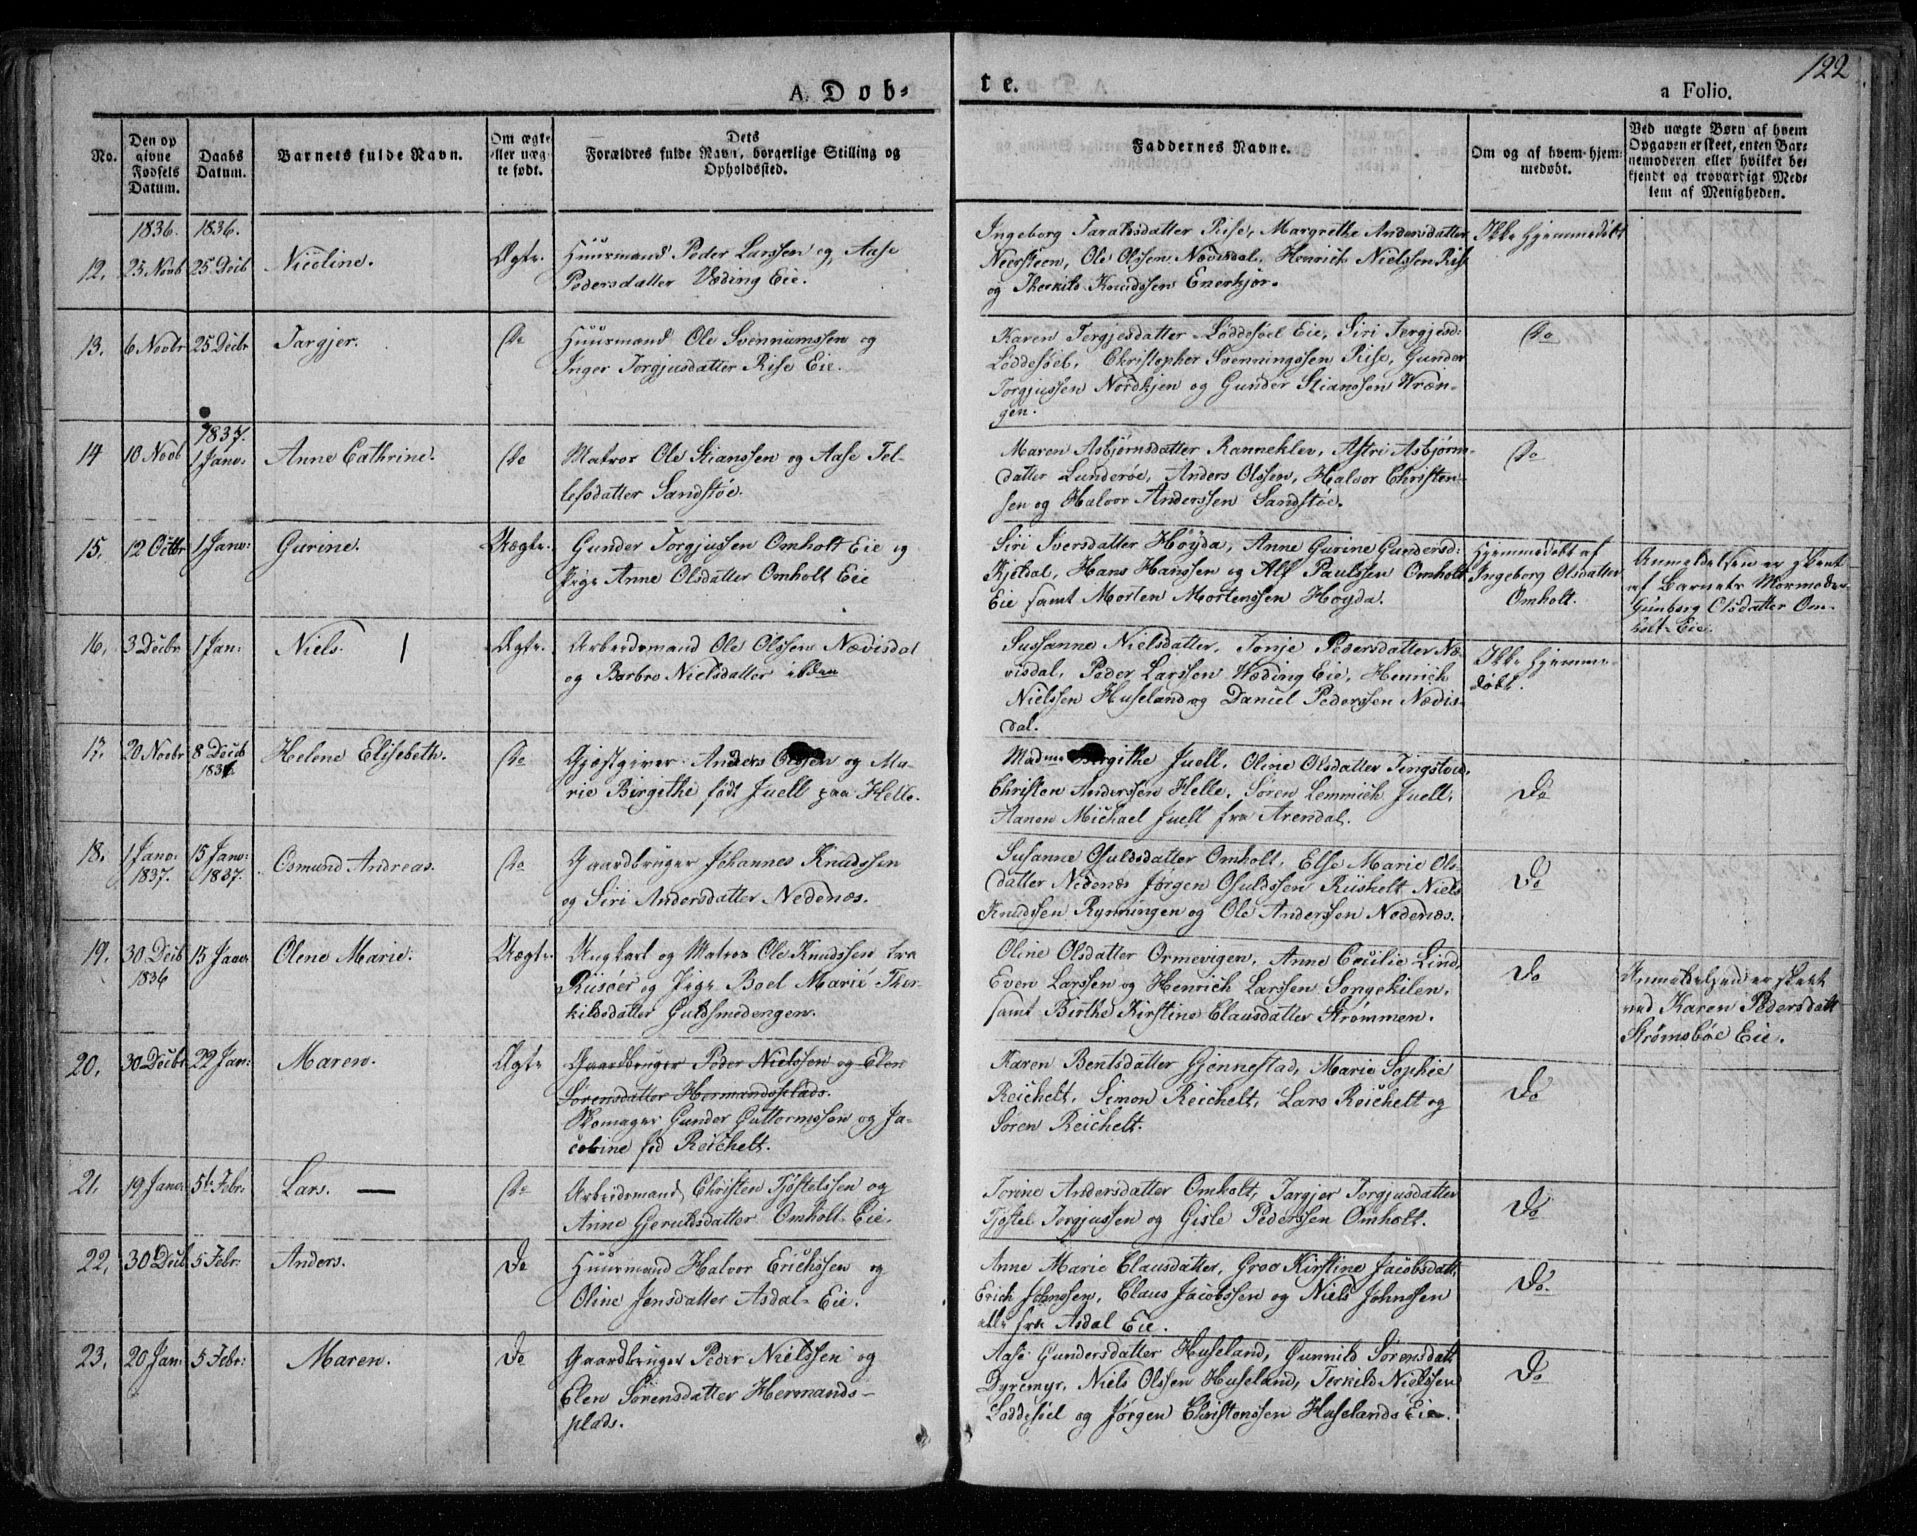 122
A. Døb-
te.
a Folio.
No.
Den op
givne
Fødsels
Datum.
Daabs
Datum.
Barnets fulde Navn.
Om ægte
eller uæg-
te født.
Dets
Forældres fulde Navn, borgerlige Stilling og
Opholdssted.
Faddernes Navne.
Om og af hvem hjem-
medøbt.
Ved uægte Børn af hvem
Opgaven er skeet, enten Bar-
nemoderen eller hvilket be-
kjendt og troværdigt Med-
lem af Menigheden.
1836. 1836.
12. 25 Novb 25 Decb Nicoline. Ægte. Huusmand Peder Larssen og Aase
Pedersdatter Væding Eie.
Ingeborg Taraldsdatter Rise, Margrethe Andersdatter
Neersteen, Ole Olssen Nævisdal, Henrich Nielssen Rise
og Therkils Knudssen Enerkjør.
Ikke Hjemmedøbt
13. 6 Novbr 25 Decbr Targjer. Do Huusmand Ole Svennumssen og
Inger Torgjusdatter Rise Eie.
Karen Tergjesdatter Løddesøel Eie, Siri Tergjesd:
Løddesøel, Christopher Svenningssen Rise, Gunder
Torgjussen Nordkjen og Gunder Stianssen Vræn-
gen.
Do
1837.
14 10 Novb 1 Janv: Anne Cathrine. Do Matros Ole Stianssen og Aase Tel-
lefsdatter Sandstøe.
Maren Asbjørnsdatter Ranneklev, Astri Asbjørns-
datter Lunderøe, Anders Olssen, Halvor Christen-
sen og Halvor Anderssen Sandstøe.
Do
15. 12 Octbr 1 Janv: Gurine. Uægte. Gunder Torgjussen Omholt Eie og
Pige Anne Olsdatter Omholt Eie
Siri Iversdatter Høyda, Anne Gurine Gundersd:
Kjetdal, Hans Hanssen og Alf Paulssen Omholt
Eie samt Morten Mortenssen Høyda.
Hjemmedøbt af
Ingeborg Olsdatter
Omholt.
Anmeldelsen er skeet
af Barnets Mormoder
Gunborg Olsdatter Om-
holt Eie.
16. 3 Decbr 1 Jan: Niels. Ægte. Arbeidsmand Ole Olssen Nævisdal
og Barbro Nielsdatter ibden
Susanne Nielsdatter, Tonje Pedersdatter Næ-
visdal, Peder Larssen Væding Eie, Henrich
Nielssen Huseland og Daniel Pederssen Nævis-
dal.
Ikke Hjemme-
døbt.
17. 20 Novbr 8 Decb
1836 Helene Elisebeth. Do Gjæstgiver Anders Olssen og Ma-
rie Birgithe født Juell paa Helle.
Madme Birgithe Juell, Oline Olsdatter Tingstved,
Christen Anderssen Helle, Søren Lemmich Juell,
Aanon Michael Juell fra Arendal.
Do
18. 1 Janv:
1837. 15 Janv:
1837. Osmund Andreas. Do Gaardbruger Johannes Knudssen
og Siri Andersdatter Nedenæs.
Susanne Osuldsdatter Omholt, Else Marie Ols-
datter Nedenæs Jørgen Osuldssen Riisholt Niels
Knudssen Rynningen og Ole Anderssen Nedenæs.
Do
19. 30 Decb
1836 15 Janv Olene Marie. Uægte. Ungkarl og Matros Ole Knudssen fra
Riisøer og Pige Boel Marie Ther-
kildsdatter Guldsmedengen.
Oline Olsdatter Ormevigen, Anne Cecilie Lind,
Even Larssen og Henrich Larssen Songekilen,
samt Birthe Kirstine Clausdatter Strømmen.
Do
Anmeldelsen er skeet
ved Karen Pedersdatt
Strømsbøe Eie.
20. 30 Decbr 22 Jan: Maren. Ægte Gaardbruger Peder Nielssen og Elen
Sørensdatter Hermandsplads.
Skomager Gunder Guttormssen og Ja-
cobine fød Reichelt.
Karen Bentsdatter Gjennestad, Marie Sophie
Reichelt, Simon Reichelt, Lars Reichelt og
Søren Reichelt.
Do
21. 19 Janv: 5te Febr: Lars. Do Arbeidsmand Christen Tjøstelssen og
Anne Gjeruldsdatter Omholt Eie.
Torine Andersdatter Omholt, Targjer Torgjusdatter
Tjøstel Torgjussen og Gisle Pederssen Omholt.
Do
22. 30 Decb 5 Febr: Anders. Do Huusmand Halvor Erichssen og
Oline Jensdatter Asdal Eie.
Anne Marie Clausdatter, Groe Kirstine Jacobsdatt,
Erich Johnssen, Claus Jacobssen og Niels Johnssen
alle fra Asdal Eie.
Do.
23. 20 Jan: 5 Febr: Maren. Do Gaardbruger Peder Nielssen og
Elen Sørensdatter Hermands-
plads.
Aase Gundersdatter Huseland, Gunnild Sørensdatt
Dyremyr, Niels Olssen Huseland, Terkild Nielssen
Løddesøel og Jørgen Christenssen Huselands Eie.
Do